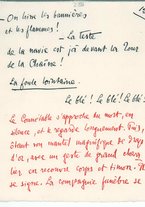 On hisse les bannières
et les flammes ! _ La teste
de la navie est jà devant la Tour
de la Chaîne !
La foule lointaine.
Le blé ! Le blé ! Le blé !
Le Connétable s'approche du mort, en
silence, et le regarde longuement. Puis,
ôtant son mantel magnifique de drap
d'or, avec un geste de grand
il en recouvre corps et timon. Il
se signe. La compagnie funèbre se